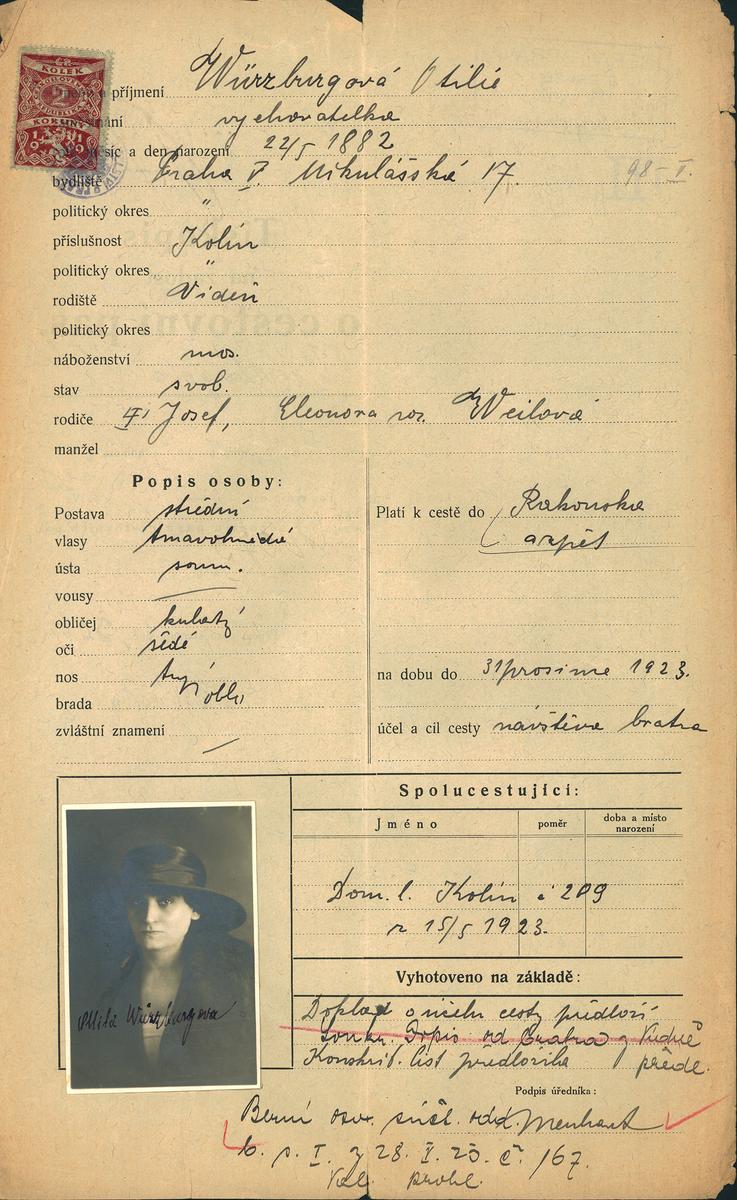 KOLEK
2
KORUNY
a příjmení Würzburgová Otilie
vychovatelka
a den narození 22/5 1882
bydliště Praha V. Mikulášská 17 98-V.
politický okres "
příslušnost Kolín
politický okres "
rodiště Vídeň
politický okres
náboženství mos.
stav svob.
rodiče Josef, Eleonora roz. Weilová
manžel
Popis osoby:
Postava střední
vlasy tmavohnědé
ústa soum.
vousy —
obličej kulatý
oči šedé
nos
brada oblá
zvláštní znamení —
Platí k cestě do Rakouska
a zpět
na dobu do 31 prosince 1923.
účel a cíl cesty návštěva bratra
Spolucestující:
Jméno
poměr
doba a místo
narození
Dom. l. Kolín č 209
z 15/5 1923.
Vyhotoveno na základě:
Doklad o účelu cesty předloží
soukr. Dopis od bratra z Vídně
Konskrif. list předložila předl.
Würzburgova
Podpis úředníka:
Berní odd. Menhart
b. p. I. z 28. V. 23. č. 167.